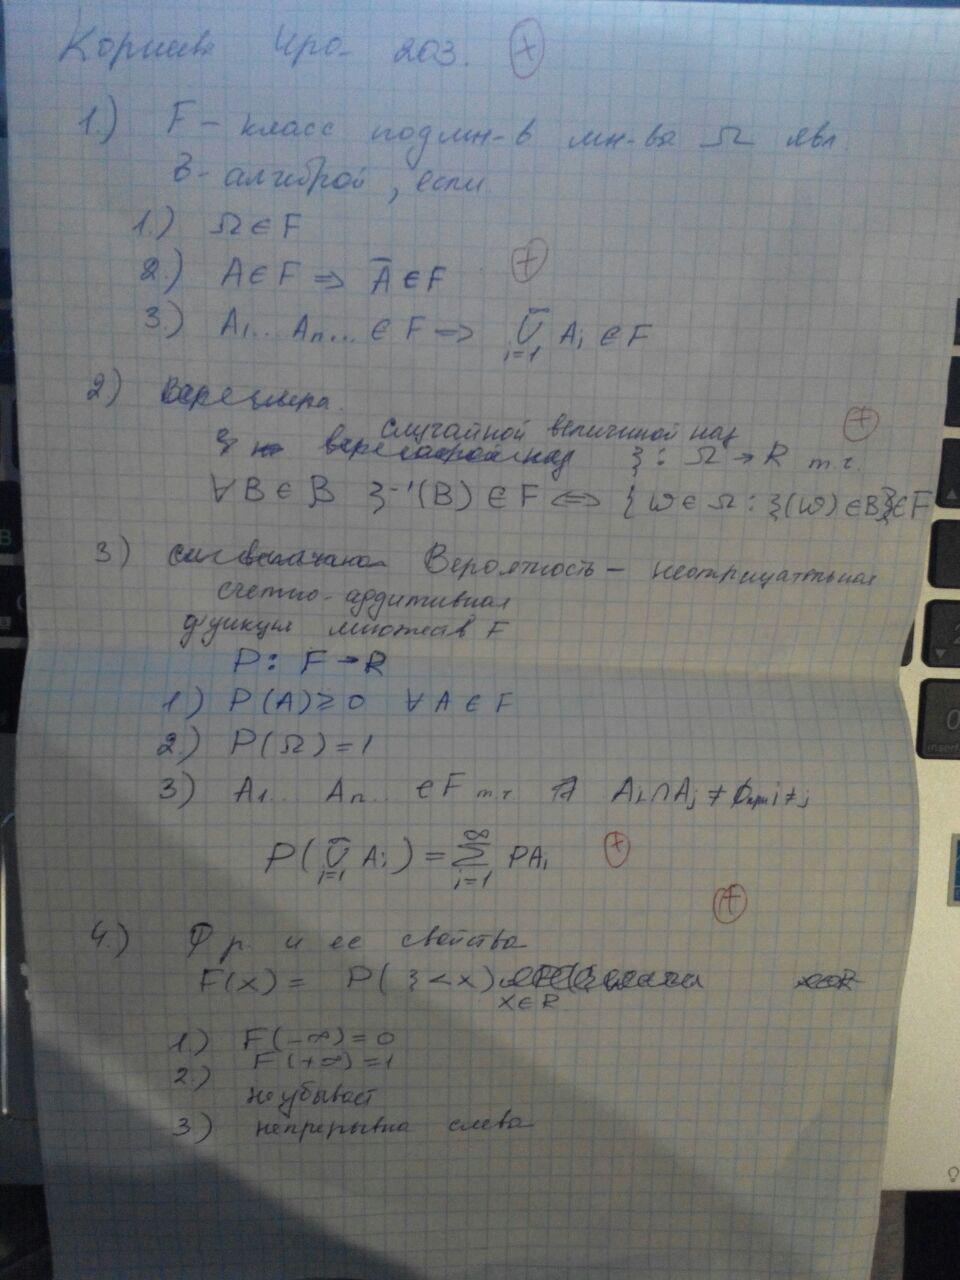 Ира 203. +
1.) F - класс подмн-в мн-ва Ω явл.
σ-алгеброй, если
1.) Ω ∈ F
2.) A ∈ F => A̅ ∈ F +
3.) A₁... Aₙ... ∈ F => ∞⋃i=1 Aᵢ ∈ F
2)
случайной величиной наз +
ξ : Ω → R т.ч.
∀B ∈ B ξ⁻¹(B) ∈ F <=> {ω ∈ Ω : ξ(ω) ∈ B} ∈ F
3) Вероятность - неотрицательная
счетно-аддитивная
функция множеств F
P : F → R
1) P(A) ≥ 0 ∀ A ∈ F
2.) P(Ω) = 1
3) A₁... Aₙ.. ∈ F т.ч. Aᵢ ∩ Aⱼ ≠ ∅ при i ≠ j
P(∞⋃i=1 Aᵢ) = ∞∑i=1 PAᵢ +
+
4.) Ф.р. и ее свойства
F(x) = P(ξ < x)
x ∈ R
1.) F(-∞) = 0
F(+∞) = 1
2.) не убывает
3) непрерывна слева
insert